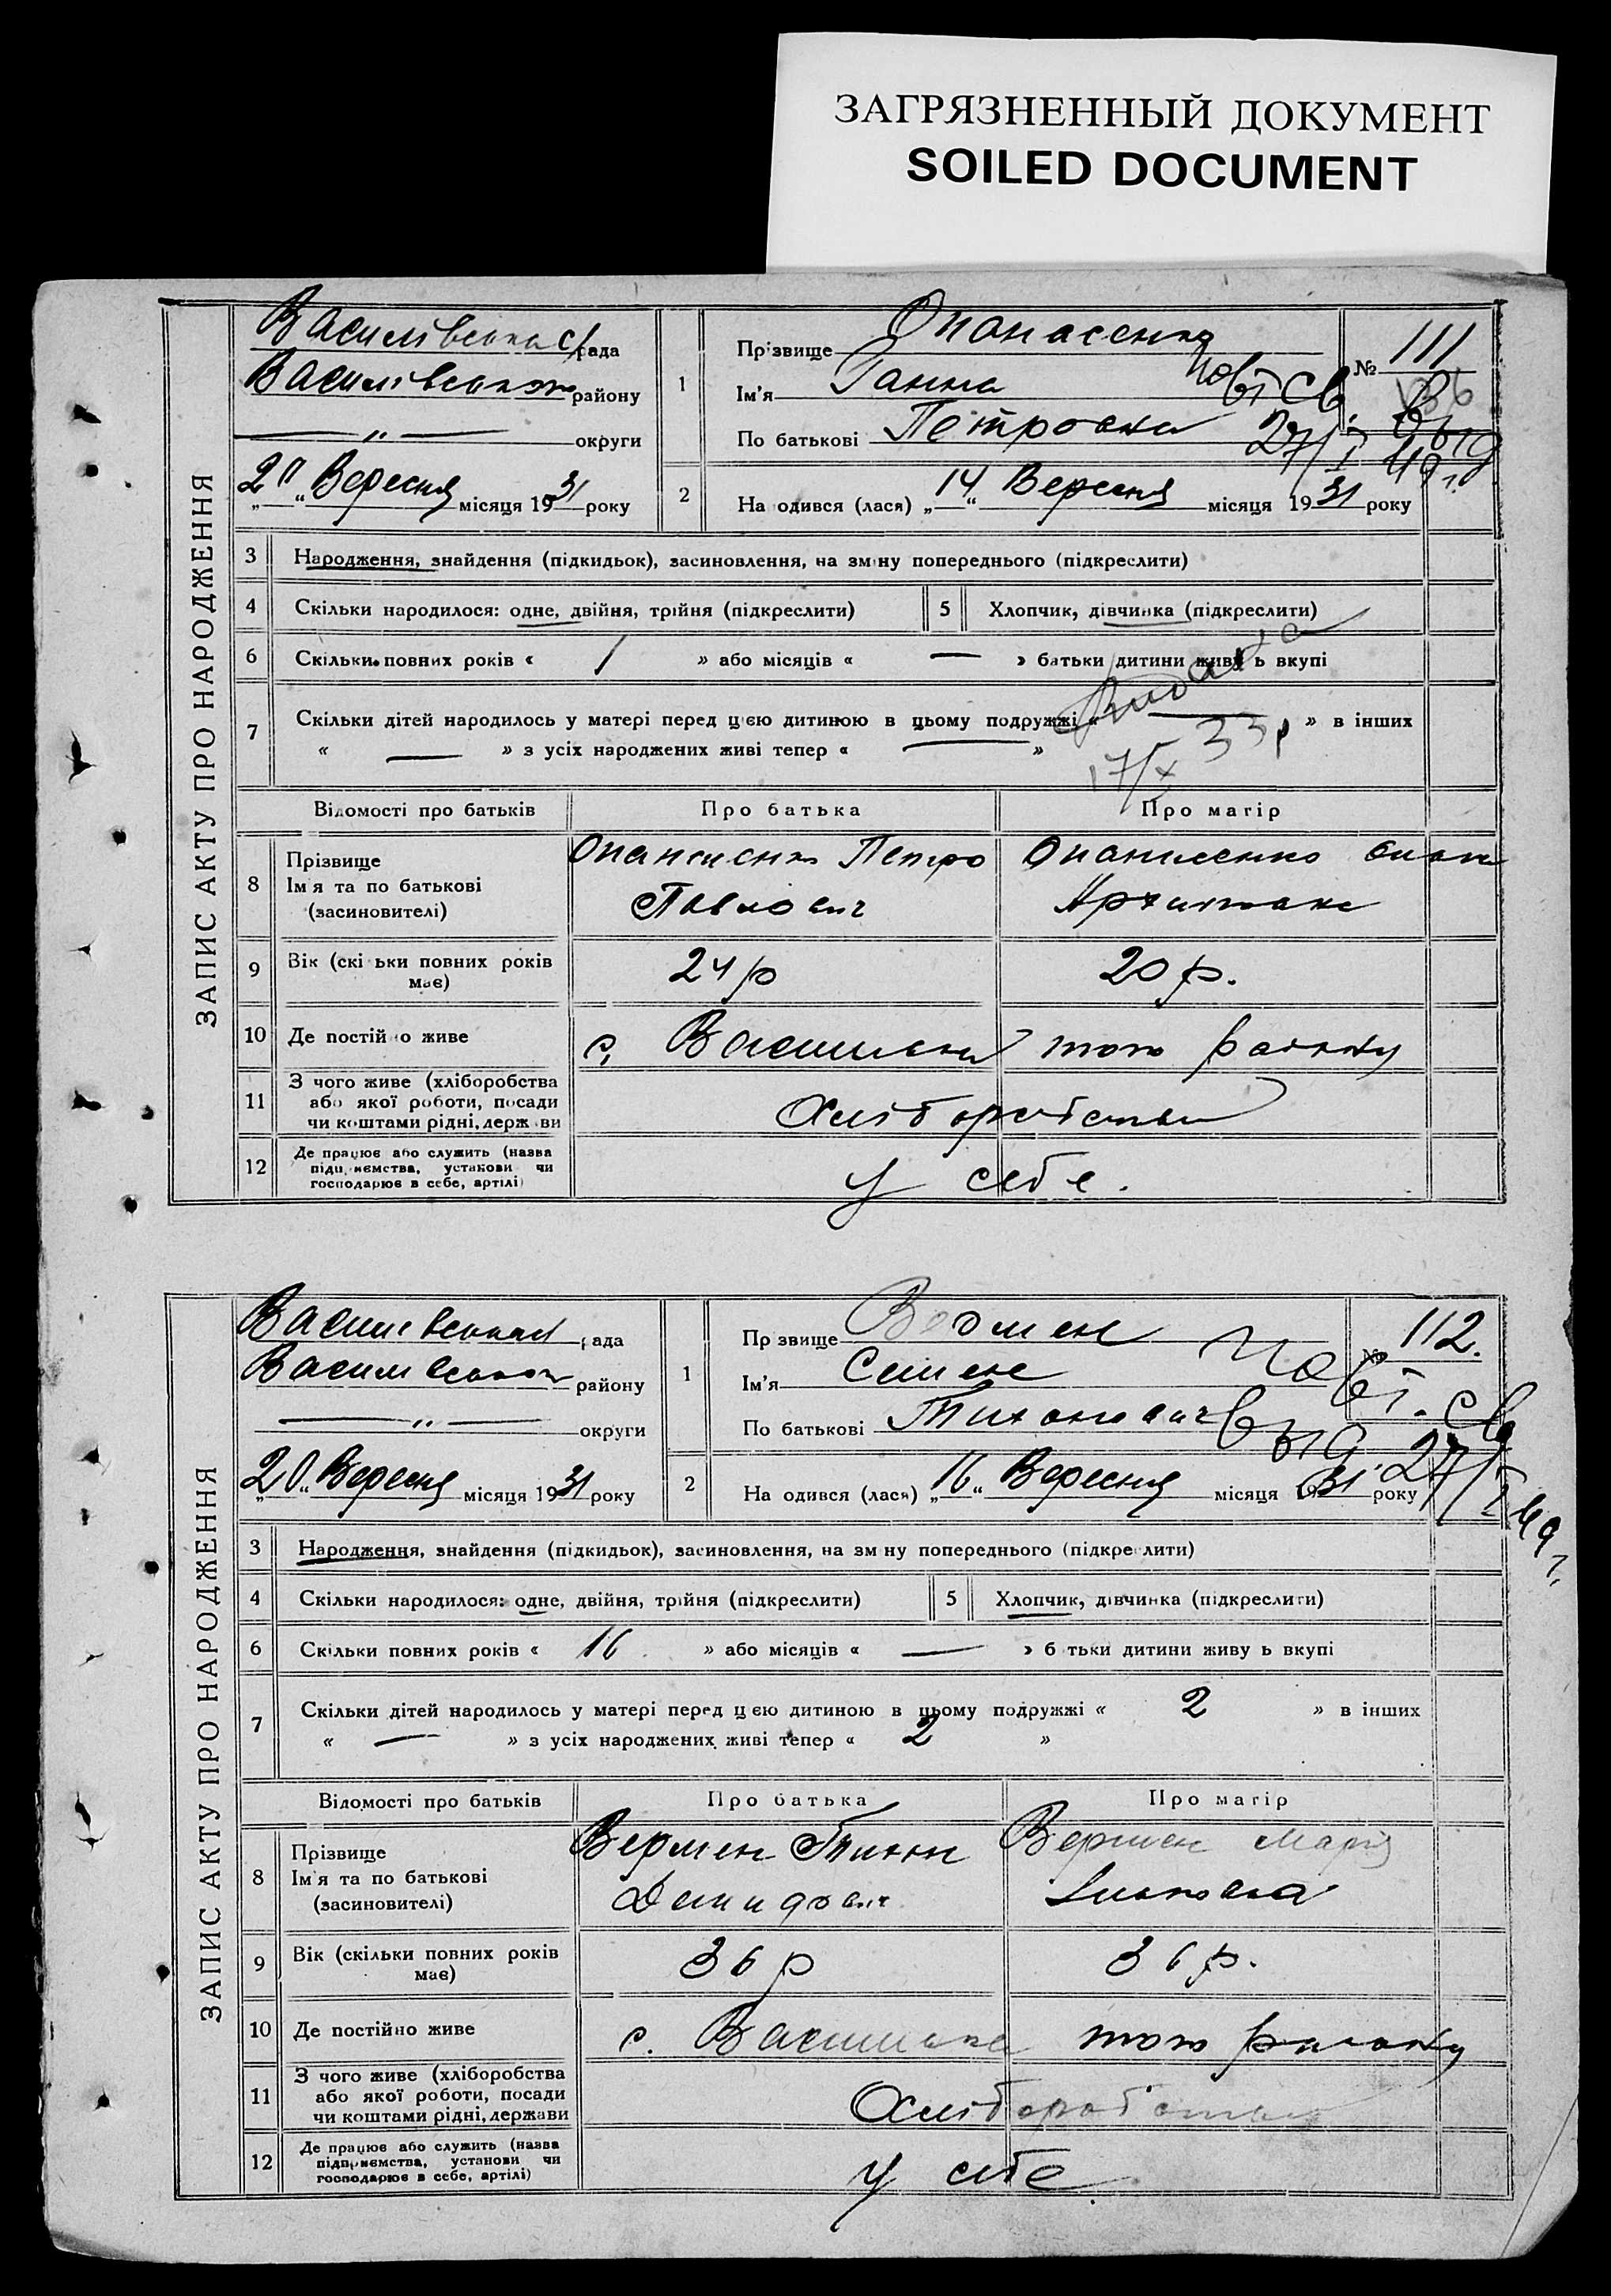 ЗАГРЯЗНЕННЫЙ ДОКУМЕНТ
SOILED DOCUMENT
ЗАПИС АКТУ ПРО НАРОДЖЕННЯ
Василівська с/рада
Василівського району
— „ — округи
„20“ Вересня місяця 1931 року
1
Прізвище Опанасенко
Ім'я Ганна
По батькові Петровна
№ 111
Повт св.
выд
27/I 49 г.
2
На одився (лася) „14“ Вересня місяця 1931 року
3 Народження, знайдення (підкидьок), засиновлення, на зміну попереднього (підкреслити)
4 Скільки народилося: одне, двійня, трійня (підкреслити)
5 Хлопчик, дівчинка (підкреслити)
6 Скільки повних років « 1 » або місяців « — » батьки дитини живу ь вкупі
7 Скільки дітей народилось у матері перед цією дитиною в цьому подружжі « — » в інших
« — » з усіх народжених живі тепер « — »
17/X 33 р
Відомості про батьків Про батька Про матір
8 Прізвище
Ім'я та по батькові
(засиновителі)
Опанасенко Петро
Павлович
Опанасенко
9 Вік (скі ьки повних років
має)
24 р
20 р.
10 Де постій о живе
с. Василівка того району
11 З чого живе (хліборобства
або якої роботи, посади
чи коштами рідні, держ ви
Хліборобство
12 Де працює або служить (назва
підприємства, установи чи
господарює в себе, артілі)
у себе.
ЗАПИС АКТУ ПРО НАРОДЖЕННЯ
Василівська рада
Василівського району
— „ — округи
„20“ Вересня місяця 1931 року
1
Пр звище
Ім'я Семен
По батькові Тихонович
№ 112.
Повт. св
выд. 27/I 49 г.
2
На одився (лася) „16“ Вересня місяця 1931 року
3 Народження, знайдення (підкидьок), засиновлення, на зм ну попереднього (підкре лити)
4 Скільки народилося: одне, двійня, трійня (підкреслити)
5 Хлопчик, дівчинка (підкреслити)
6 Скільки повних років « 16 » або місяців « — » б тьки дитини живу ь вкупі
7 Скільки дітей народилось у матері перед цією дитиною в цьому подружжі « 2 » в інших
« — » з усіх народжених живі тепер « 2 »
Відомості про батьків Про батька Про матір
8 Прізвище
Ім'я та по батькові
(засиновителі)
Вермен Тихон
Демидович
Вермен Марія
9 Вік (скільки повних років
має)
36 р
36 р.
10 Де постійно живе
с. Василівка того району
11 З чого живе (хліборобства
або якої роботи, посади
чи коштами рідні, держави
Хліборобство
12 Де працює або служить (назва
підприємства, установи чи
господарює в себе, артілі)
у себе